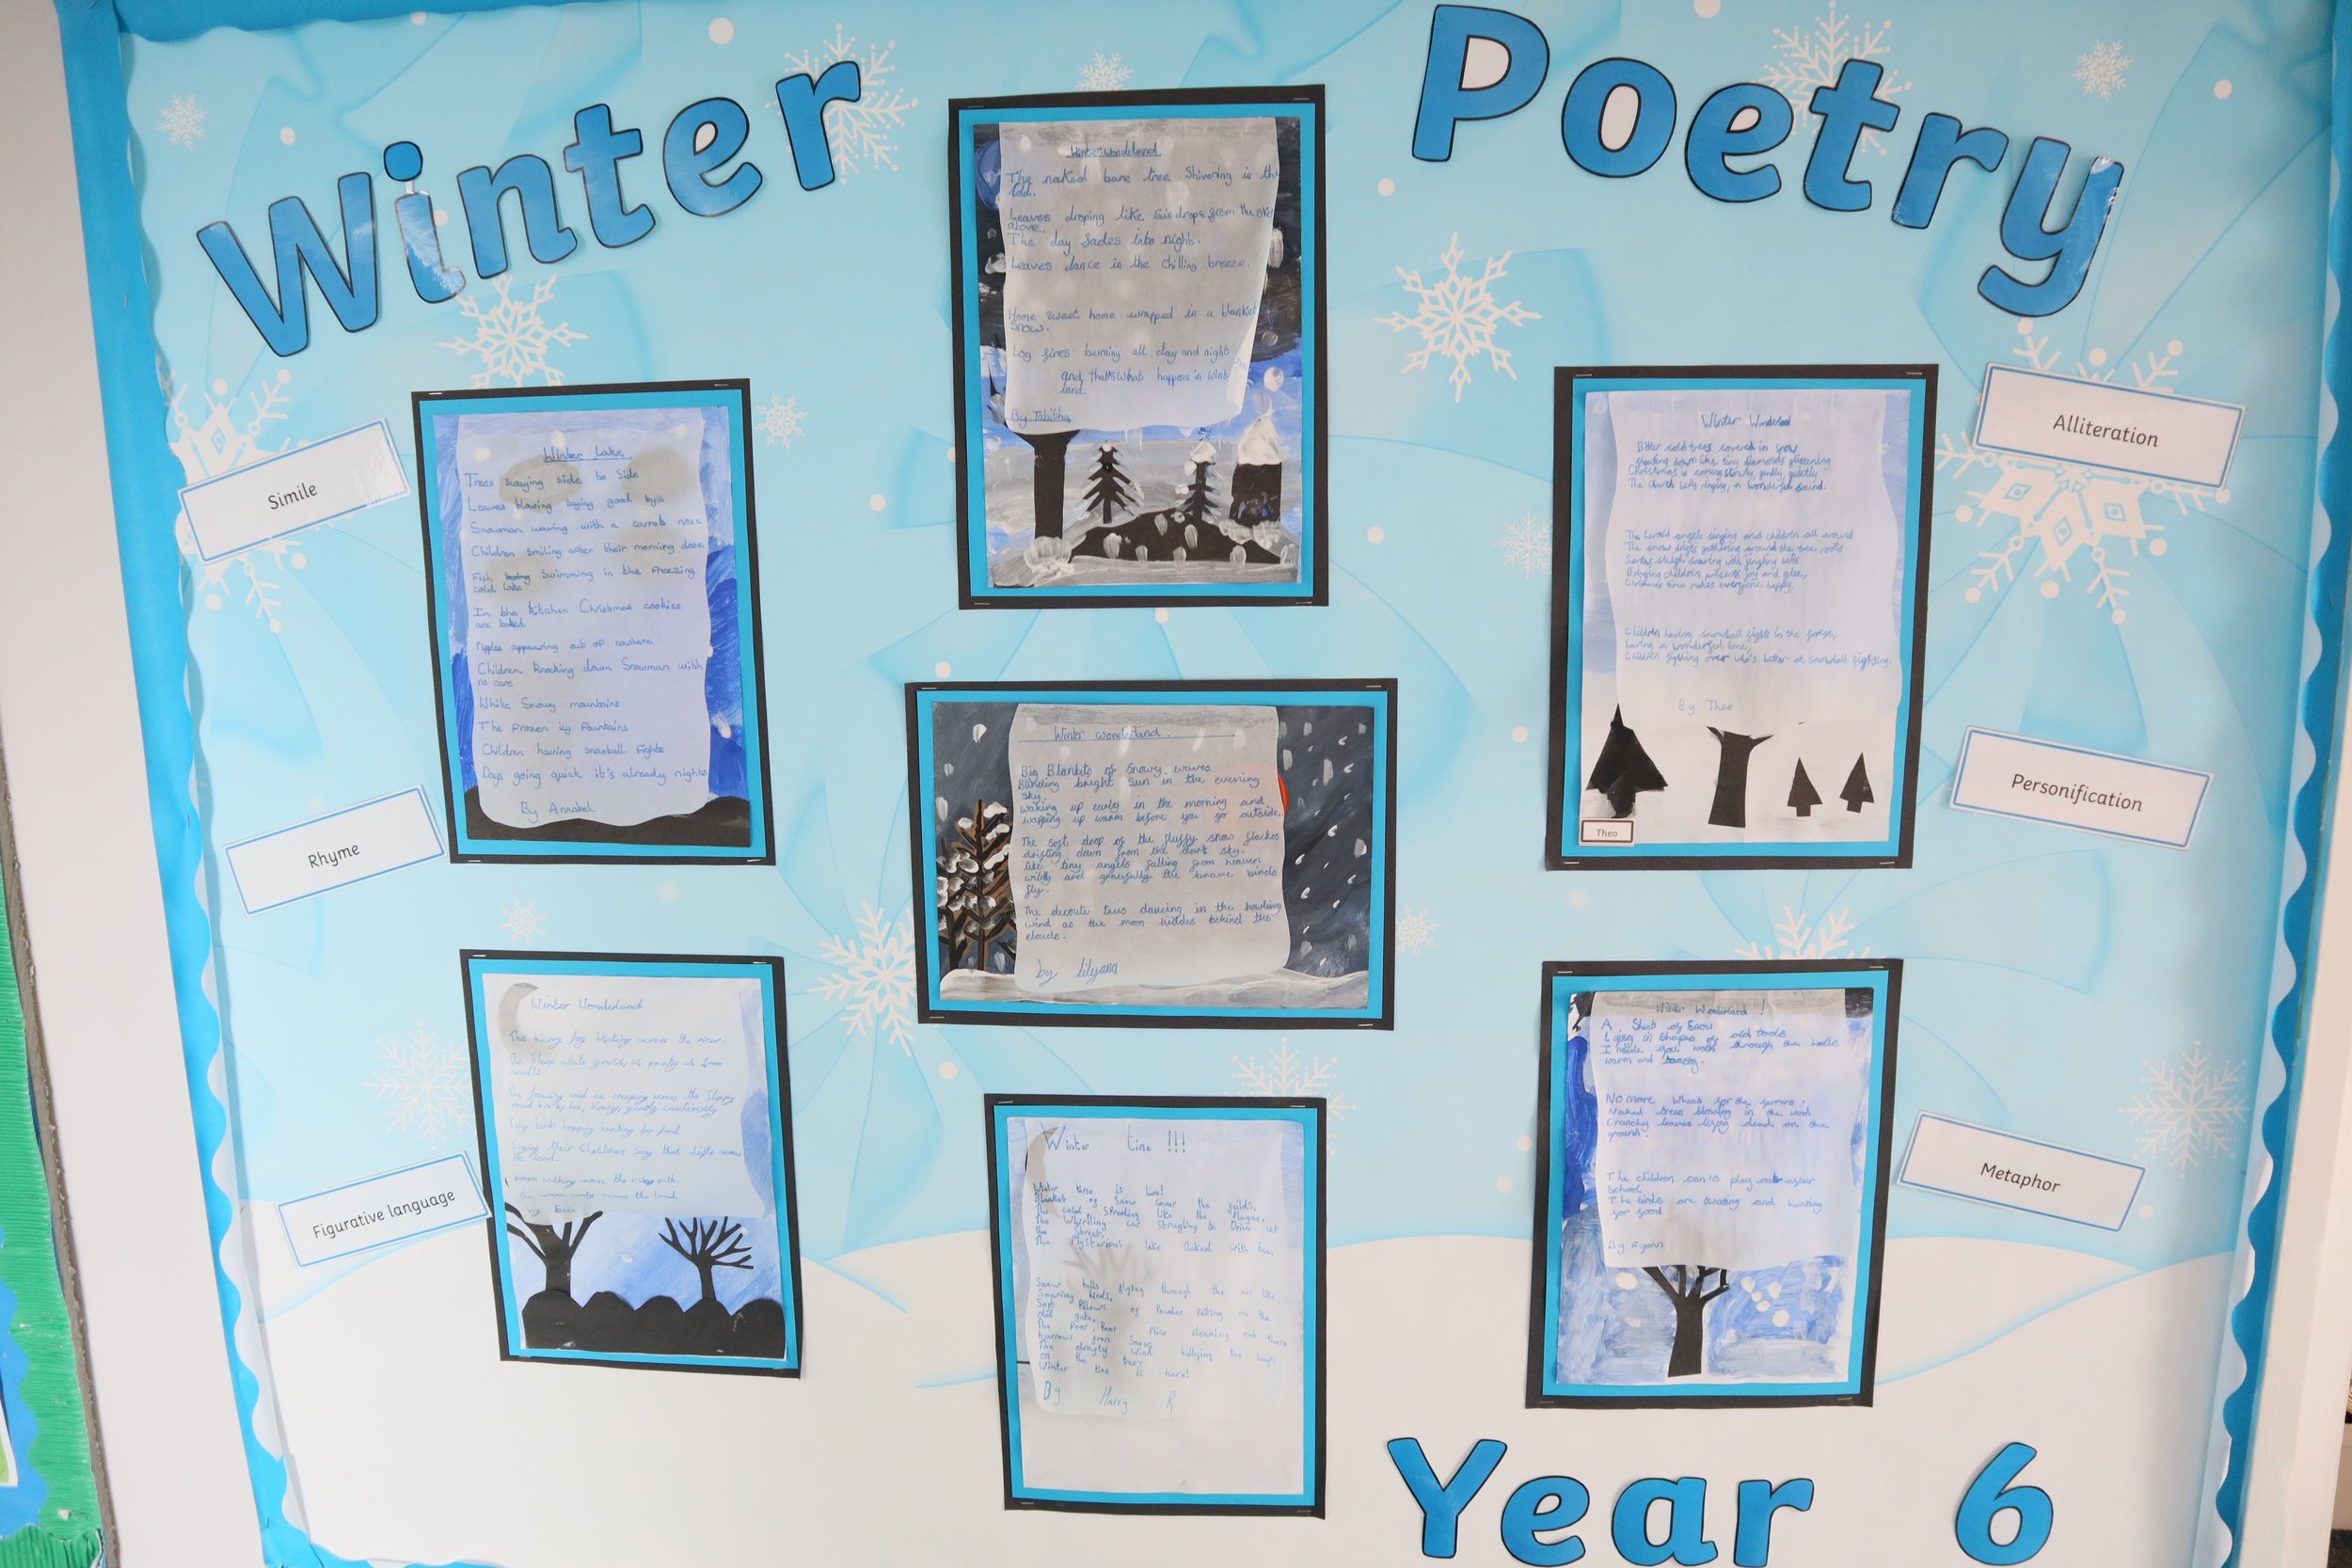 Winter
Poetry
Winter wondeland
The naked bare tree Shivering in the
Cold.
Leaves droping like rain drops from the sky
above.
The day fades into night.
Leaves dance in the chilling breeze.
Home sweet home wrapped in a blanket
Snow.
Log fires burning all day and night
and thats what happens in
land.
By Tabitha
Simile
Winter Lake
Trees swaying side to Side
Leaves blowing saying good bye
Snowman waving with a carrot nose
Children smiling after their morning doze
Fish Swimming in the freezing
cold lake
In the kitchen Christmas cookies
are baked.
ripples appearing out of nowhere
Children knocking down Snowman with
no care
White Snowy mountains
The frozen icy fountains
Children having snowball fights
Days going quick it's already night
By Annabel
Winter Wonderland
Bitter cold trees covered in snow
floating down like tiny diamonds glistening
Christmas is coming slowly, gently, quietly
The church bells ringing, a wonderful sound.
The herald angels singing and children all around
The snow drifts gathering around the tree roots
Santas sleigh soaring with jingling bells
Bringing children presents joy and glee,
Christmas time makes everyone happy.
Children having snowball fights in the forest,
having a wonderful time,
Children fighting over who's better at snowball fighting.
By Theo
Theo
Alliteration
Rhyme
Winter wonderland.
Big Blankets of snowy waves
Blinding bright sun in the evening
sky.
Waking up early in the morning and
wapping up warm before you go outside.
The soft drop of the fluffy snow flackes
drifting down from the dark sky.
like tiny angels falling from heaven
wildly and gracefully the brave birds
fly.
The decorate trees dancing in the howling
wind as the moon hiddes behind the
clouds.
by lilyann
Personification
Figurative language
Winter Wonderland
The blurry fog floating across the river.
The Sharp white grass, as pointy as
needle
The freezing cold ice creeping across the slippy
road bit by bit, slowly, gently cautiously
Tiny birds hopping hunting for food
Singing their Christmas song that drifts across
the land.
people walking across the
across the land
by
Winter time !!!
Winter time is here!
Blanket of Snow cover the feilds,
The cold spreding like the Plague,
The Whirling car Strugling to Drive up
the street,
The Mysterious lake Naked with ice,
Snow balls flying through the air like
Soaring birds,
Soft Pillows of Powder falling on the
old gate,
The Poor Poor Mice cleaning out there
burrows from Snow,
The draghty wind bullying the leaves
on the trees
Winter time is here!
By Harry R
Winter Wonderland !
A Shed of Snow
Lying in Shapes of old tools
Inside you walk through the halls
warm and
No more wheat for the farmers.
Naked trees blowing in the wind
Crunchy leaves lying dead on the
ground.
The children cants play out after
School.
The birds are tweeting and hunting
for food
By Ryann
Metaphor
Year 6